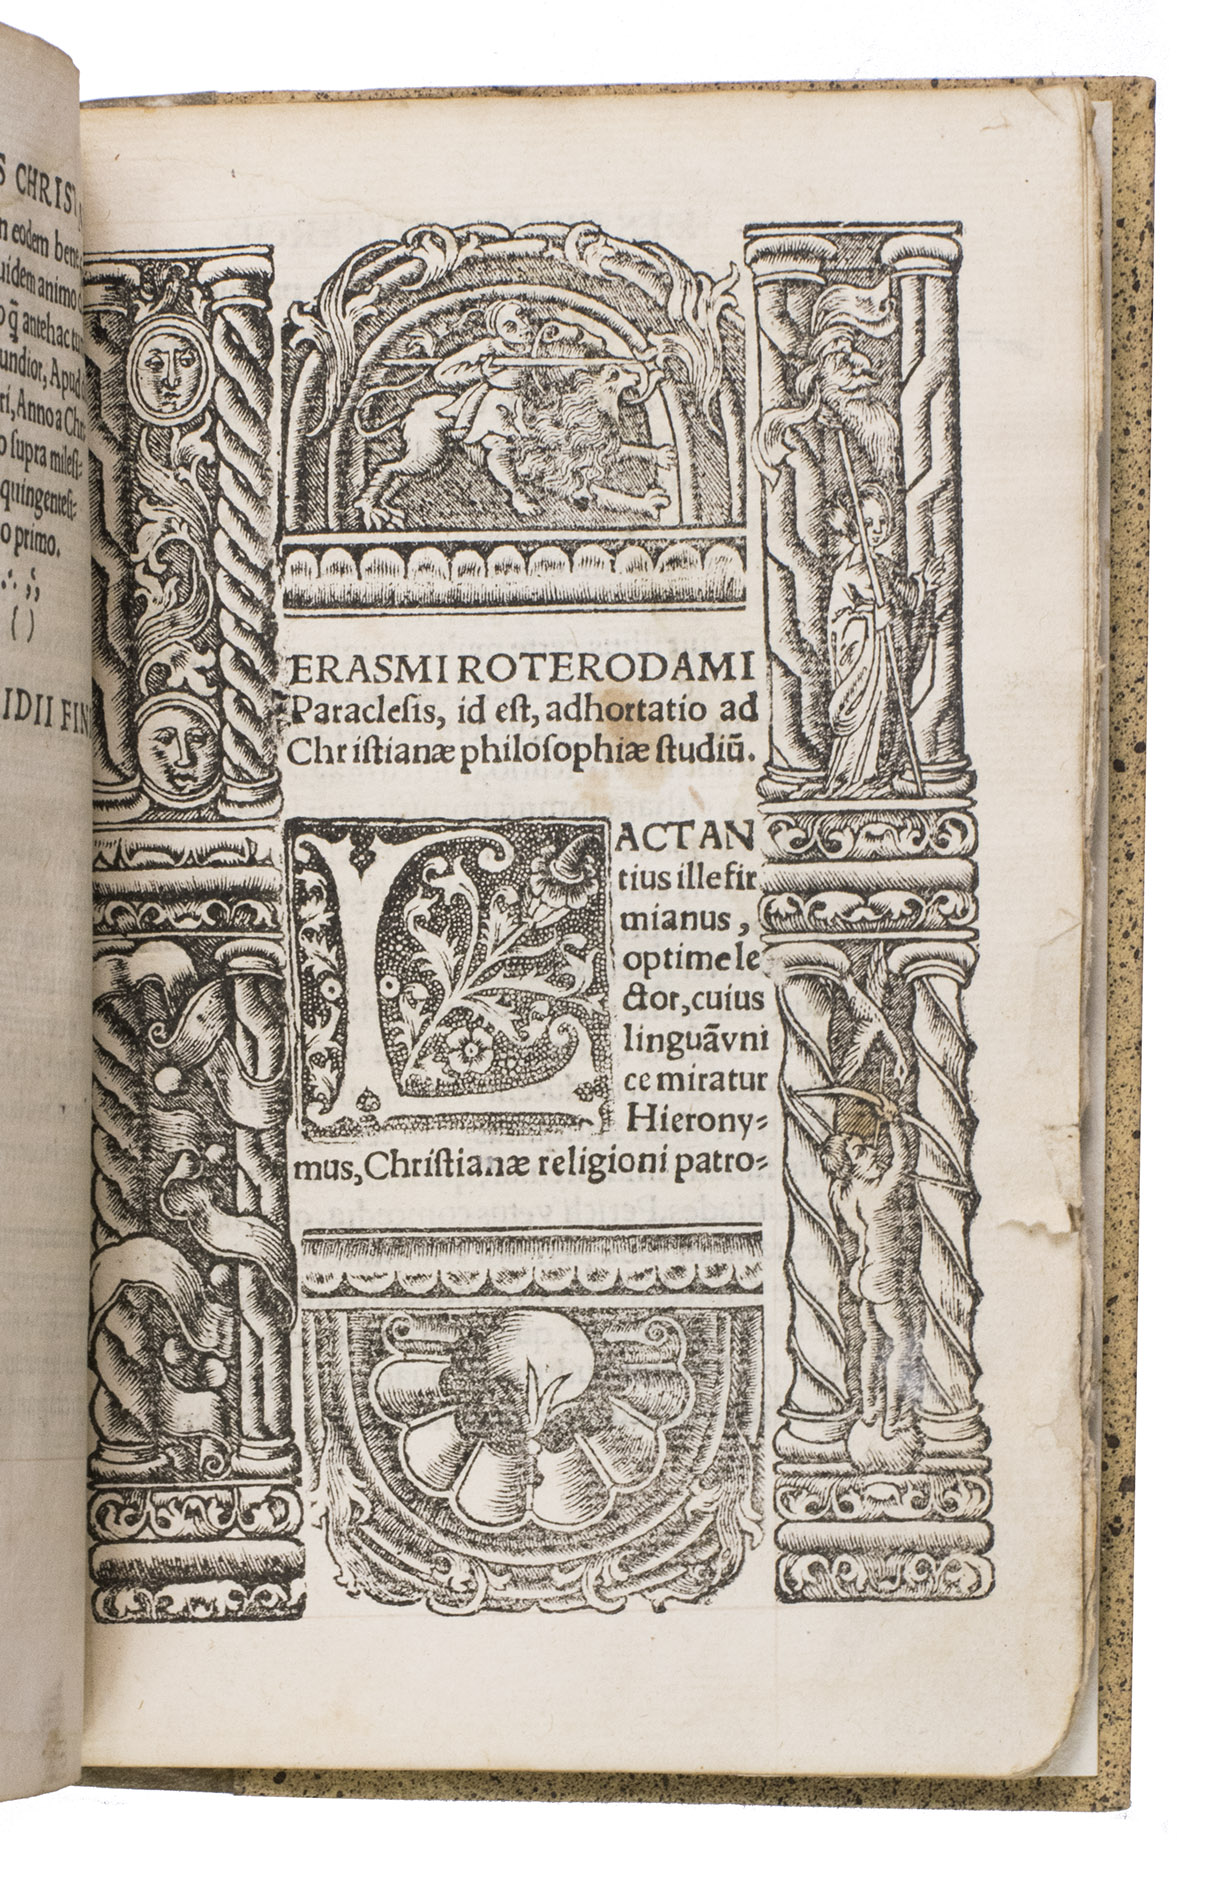 S CHRIST
n eodem bene
uidem animo
oq̃ antehac tu
undior, Apud
ri, Anno a Chri
o supra milesi⸗
quingentesi⸗
o primo.
IDII FIN
ERASMI ROTERODAMI
Paraclesis, id est, adhortatio ad
Christianæ philosophiæ studiũ.
LACTAN
tius ille fir
mianus,
optime le
ctor, cuius
linguã vni
ce miratur
Hierony⸗
mus, Christianæ religioni patro⸗